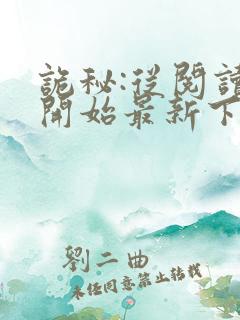 詭秘:從閱讀
開始最新下
劉二曲
未经同意禁止转载